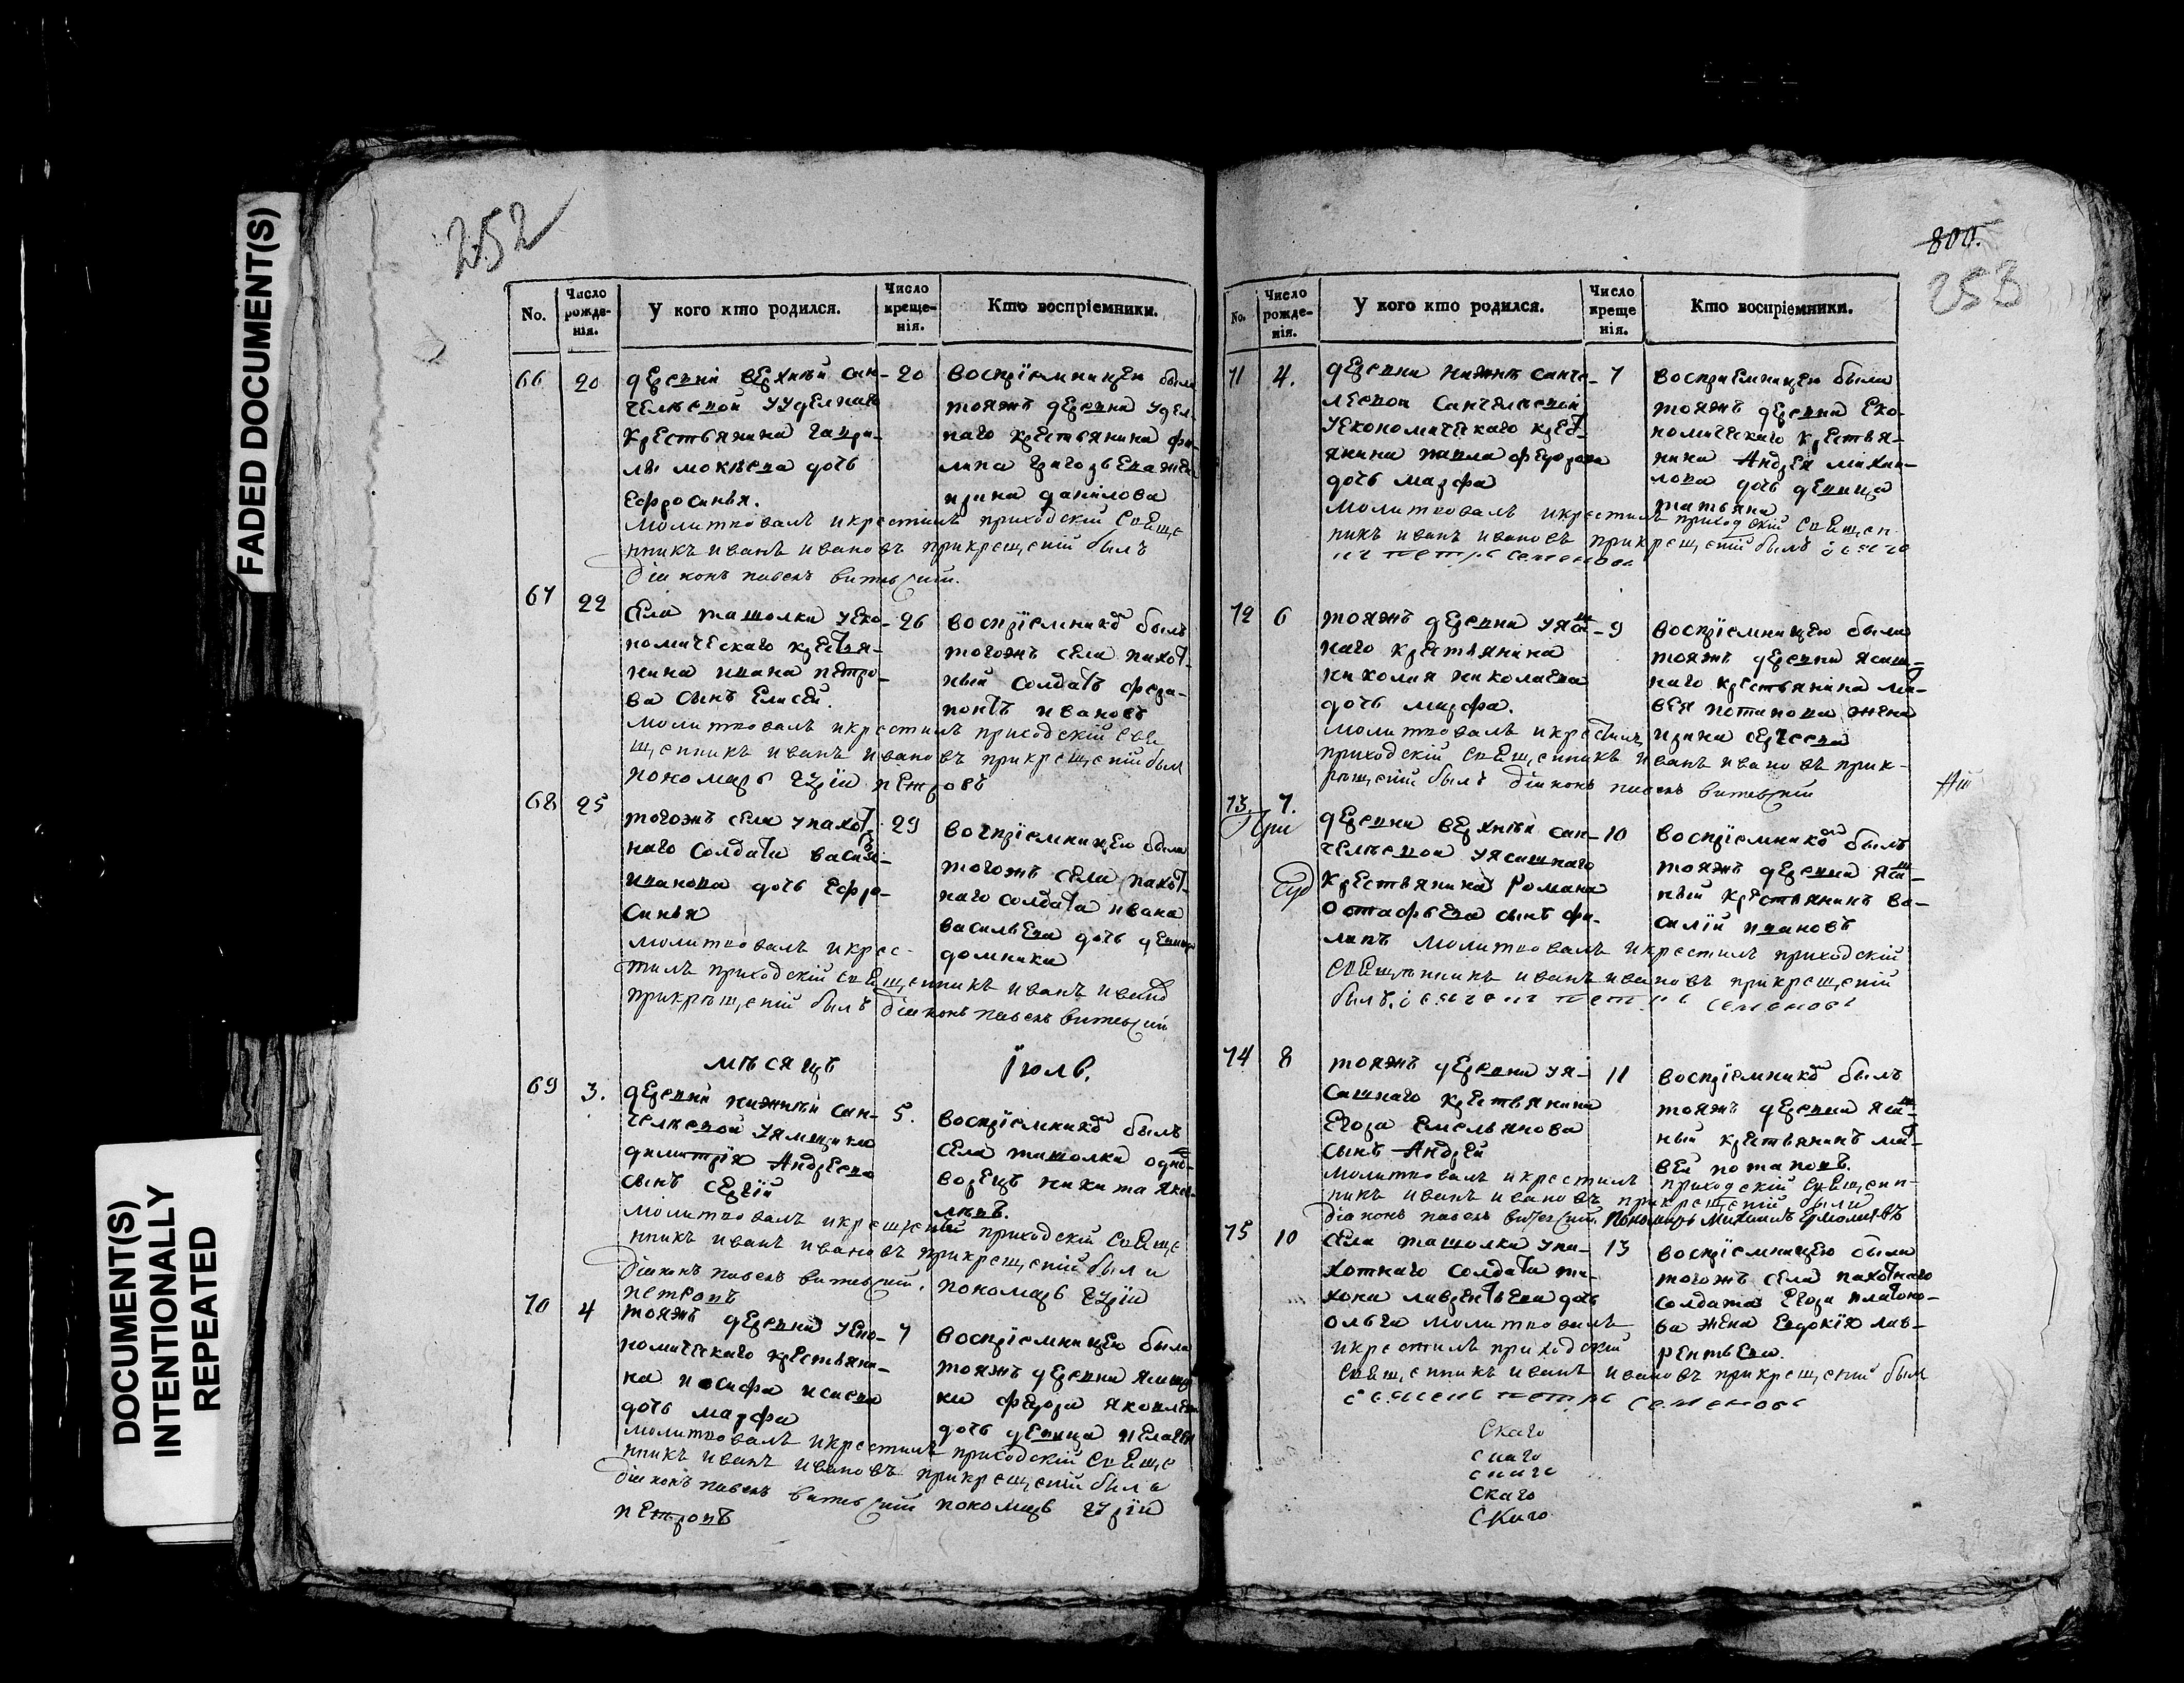 FADED DOCUMENT(S)
DOCUMENT(S)
INTENTIONALLY
REPEATED
252
No.
Число рожденія.
У кого кто родился.
Число крещенія.
Кто воспріемники.
66 20 20
деревни верхней сан-
челѣевой у удѣлнаго
крестьянина гаври-
лы мокѣева дочь
Ефросинья.
воспріемницею была
тояжъ деревни удел-
наго крестьянина фи-
липа григорьева жена
ирина данилова
молитвовалъ и крестилъ приходскій свѣще
нникъ иванъ ивановъ при крещеніи былъ
діаконъ павелъ
67 22 26
Села ташолки у еко-
номическаго крестья-
нина ивана петро-
ва сынъ Елисей.
воспріемникомъ былъ
тогожъ села пахот-
ный солдатъ ферапонтъ ивановъ
молитвовалъ и крестилъ приходскій свѣ
щенникъ иванъ ивановъ при крещеніи был
пономарь гурій петровъ
68 25 29
тогожъ села у пахот-
наго солдата васи́лья
иванова дочь Ефро-
синья
воспріемницею была
тогожъ села пахот-
наго солдата ивана
васильева дочь девица
домника
молитвовалъ и крес-
тилъ приходскій свѣщенникъ иванъ ивановъ
при крещеніи былъ діаконъ павелъ
мѣсяцъ Іюль.
69 3. 5.
деревни нижней сан-
челѣевой у ямщика
димитрія Андреева
сынъ сергій
воспріемникомъ былъ
села ташолки одно-
ворецъ никита яков-
левъ.
молитвовалъ и крещеный приходскій свѣще
нникъ иванъ ивановъ при крещеніи были
діаконъ павелъ пономарь гурій
петровъ
70 4 7
тояжъ деревни у еко-
номическаго крестьяни-
на иосифа исаева
дочь марфа
воспріемницею была
тояжъ деревни ямщи
ка федора яковлева
дочь девица пелагея
молитвовалъ и крестилъ приходскій свѣще
нникъ иванъ ивановъ при крещеніи были
діаконъ павелъ пономарь гурій
петровъ
800.
253
No.
Число рожденія.
У кого кто родился.
Число креще нія.
Кто воспріемники.
71 4. 7
деревни нижнѣ санче-
леевой
у економическаго крест-
янина павла федорова
дочь марфа
восприемницею была
тояжъ деревни Еко-
номическаго крестья-
нина Андрея михаи-
лова дочь девица
татьяна
молитвовалъ и крестилъ приходскій свѣщен
никъ иванъ ивановъ при крещеніи былъ
петръ семеновъ
72 6 9
тояжъ деревни у ясаш-
наго крестьянина
николая николаева
дочь марфа.
воспріемницею была
тояжъ деревни ясаш-
наго крестьянина мат-
вея потапова жена
ирина сергеева
молитвовалъ и крестилъ
приходскій свѣщенникъ иванъ ивановъ при к-
рещеніи былъ діаконъ павелъ
73. 7. 10
При
деревни верхней сан-
челѣевой у ясашнаго
крестьянина Романа
Остафьева сынъ фи-
липъ
воспріемникомъ былъ
тояжъ деревни ясаш-
ный крестьянинъ ва-
силій ивановъ
молитвовалъ и крестилъ приходскій
свѣщенникъ иванъ ивановъ при крещеніи
былъ петръ семеновъ
74 8 11
тояжъ деревни у я-
сашнаго крестьянина
Егора Емельянова
сынъ Андрей
воспріемникомъ былъ
тояжъ деревни ясаш-
ный крестьянинъ мат-
вей потаповъ.
молитвовалъ и крестилъ приходскій свѣщен-
никъ иванъ ивановъ при крещеніи были
діаконъ павелъ Пономарь Михаилъ Ермолаевъ
75 10 13
Села ташолки у па-
хотнаго солдата ти-
хона лаврентьева дочь
ольга
воспріемницею была
тогожъ села пахотнаго
солдата Егора платоно-
ва жена Евдокія лав-
рентьева.
молитвовалъ
и крестилъ приходскій
свѣщенникъ иванъ ивановъ при крещеніи был
петръ семеновъ
Скаго
скаго
скаго
скаго
Скаго